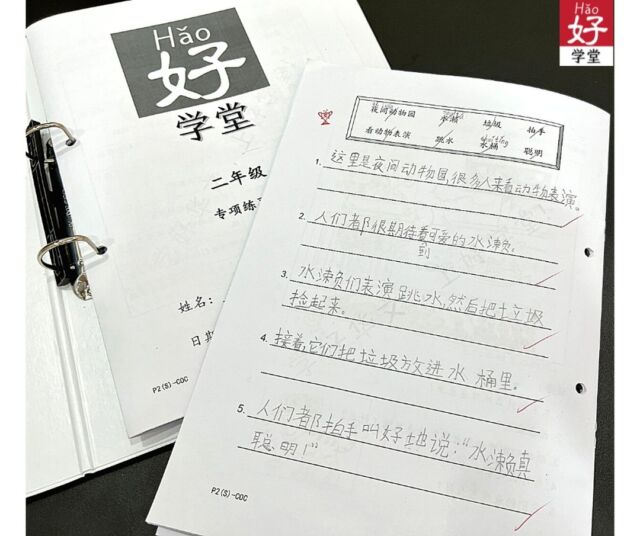 Hǎo
好
学堂
二年级
专项练
姓名：
日期
P2(S)-COC
好
学堂
夜间动物园 水桶 垃圾 拍手
看动物表演 跳水 水桶 聪明
1. 这里是夜间动物园,很多人来看动物表演。
2. 人们都很期待看可爱的水濑负.
到
3. 水濑负们表演跳水,然后把垃圾
捡起来。
4. 接着,它们把垃圾放进水桶里.
5. 人们都拍手叫好地说:“水濑真
聪明!”
P2(S)-COC